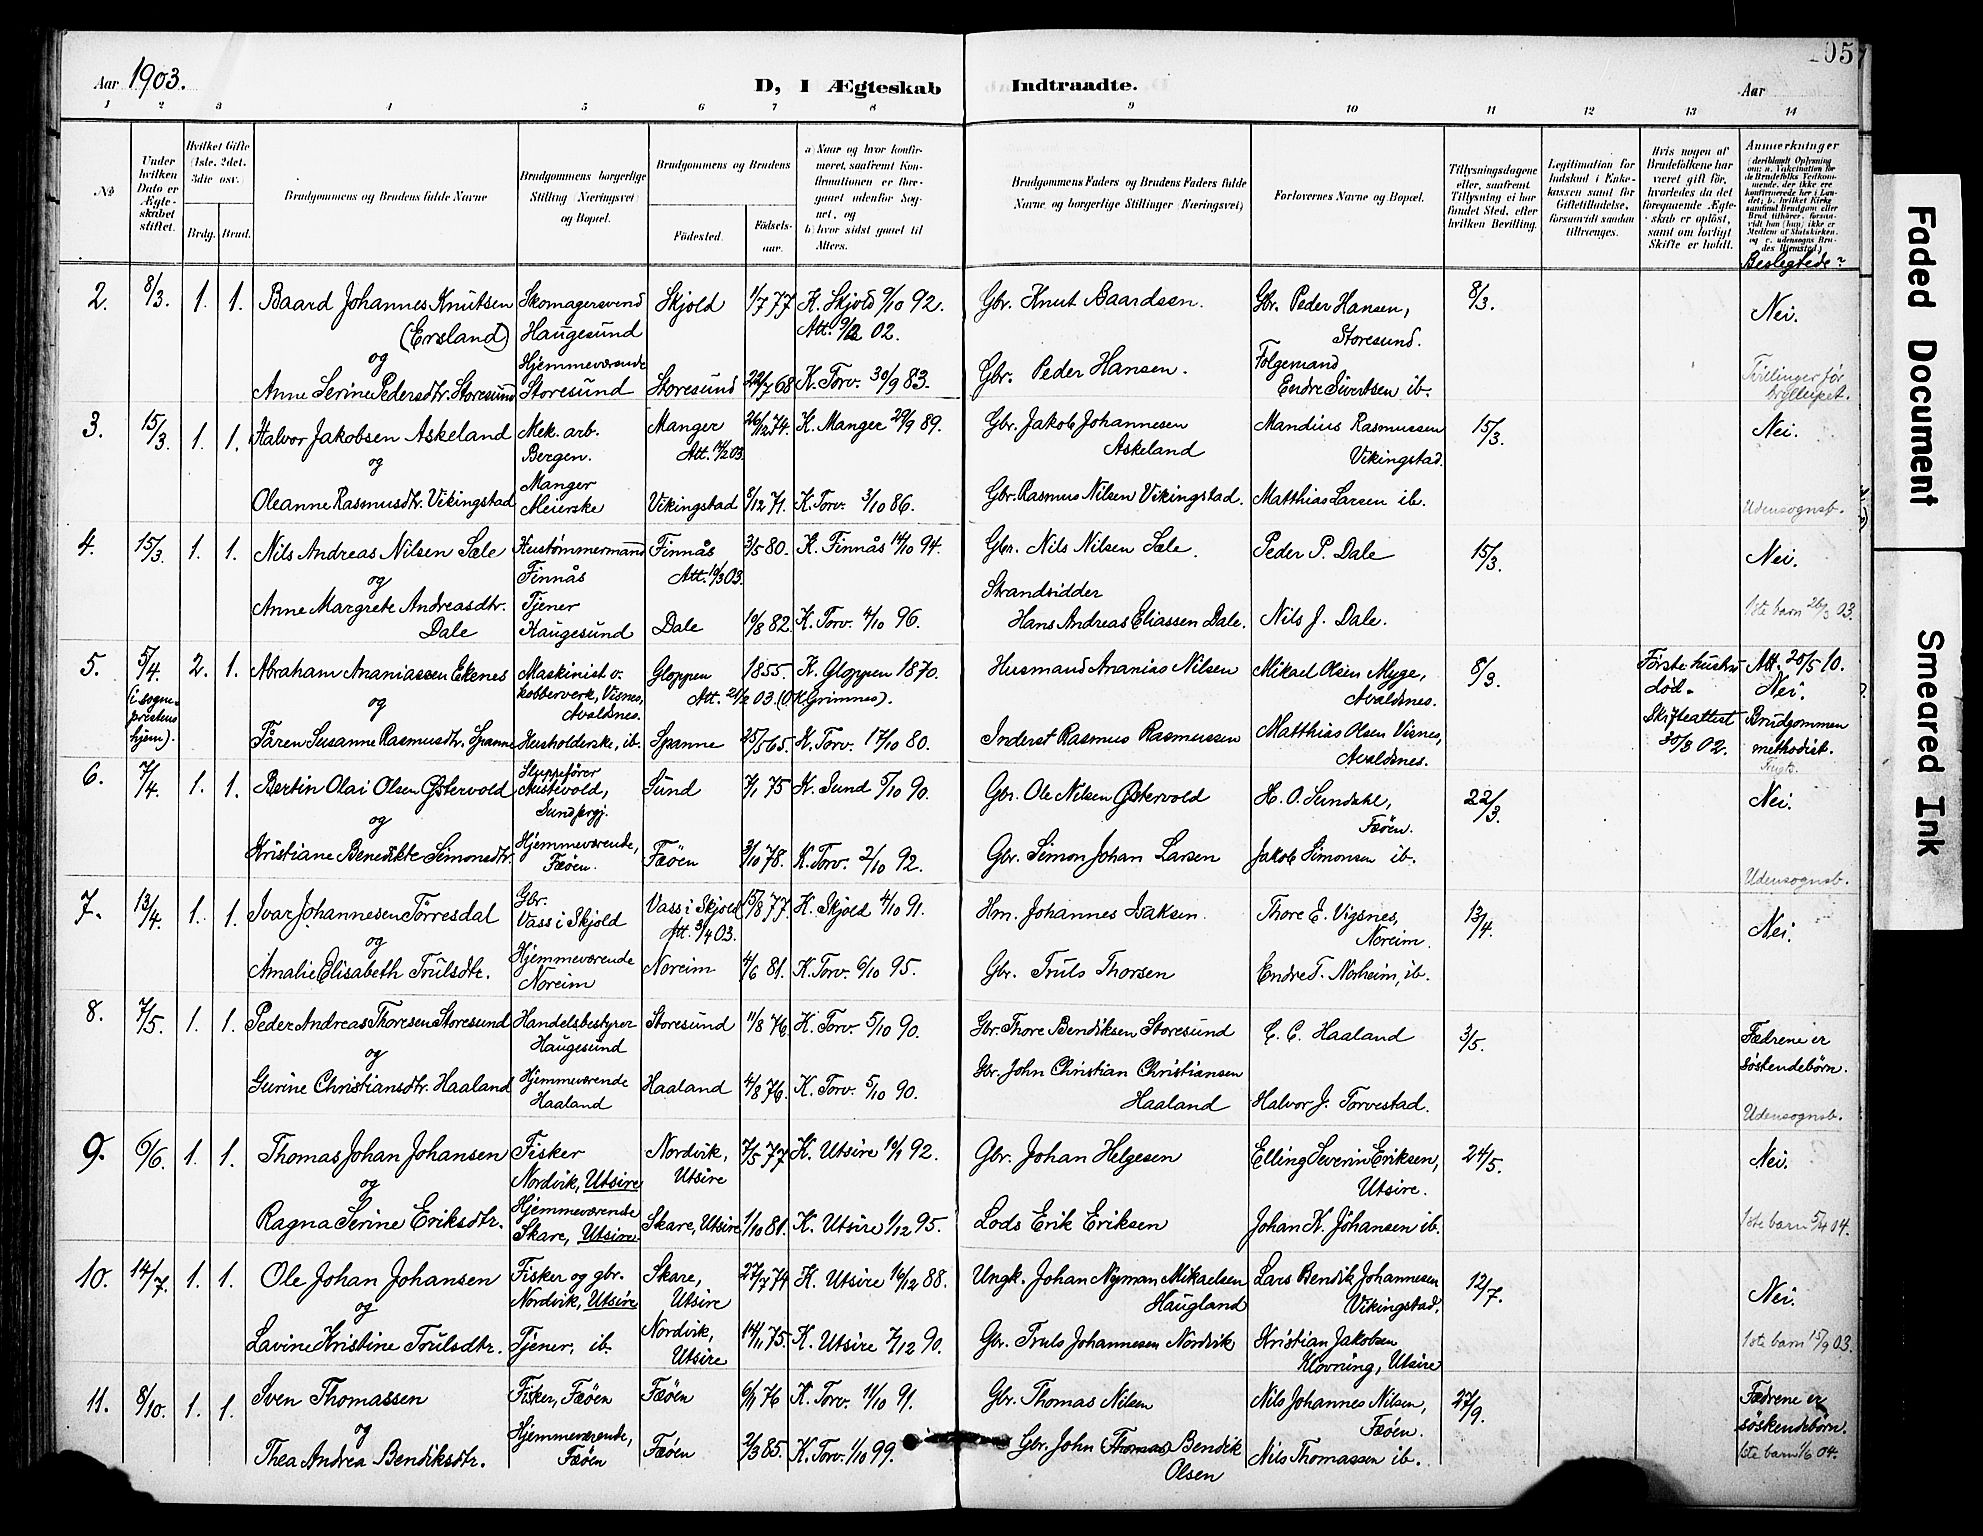 105
Aar 1903.
D, I Ægteskab Indtraadte.
Aar
1 2 3 4 5 6 7 8 9 10 11 12 13 14
№
Under hvilken Dato er Ægteskabet stiftet.
Hvilket Gifte (1ste, 2det, 3die osv.)
Brdg. Brud.
Brudgommens og Brudens fulde Navne
Brudgommens borgerlige Stilling (Næringsvei) og Bopæl.
Brudgommens og Brudens
Fødested. Fødselsaar.
a) Naar og hvor konfirmeret, saafremt Konfirmationen er foregaaet udenfor Sognet, og
b) hvor sidst gaaet til Alters.
Brudgommens Faders og Brudens Faders fulde Navne og borgerlige Stillinger (Næringsvei)
Forlovernes Navne og Bopæl.
Tillysningsdagene eller, saafremt Tillysning ei har fundet Sted, efter hvilken Bevilling.
Legitimation for Indskud i Enkekassen samt for Giftetilladelse, forsaavidt saadan tiltrænges.
Hvis nogen af Brudefolkene har været gift før, hvorledes da det foregaaende Ægteskab er opløst, samt om lovligt Skifte er holdt.
Anmærkninger
Beslegtede?
2. 8/3. 1. 1. Baard Johannes Knutsen Skomagersvend Skjold 1/7 77 K. Skjold 9/10 92. Gbr. Knut Baardsen. Gbr. Peder Hansen, 8/3.
(Ersland) Haugesund Att. 02. Storesund. Nei.
og Hjemmeværende Følgemand
Anne Serine Pedersdtr. Storesund Storesund Storesund 22/7 68 K. Torv. 30/9 83. Gbr. Peder Hansen. Endre Sivertsen ib. Tvillinger før bryllupet.
3. 15/3. 1. 1. Halvor Jakobsen Askeland Mek. arb. Manger 26/12 74. K. Manger 29/9 89. Gbr. Jakob Johannesen Mandius Rasmussen 15/3. Nei.
og Bergen. Att. 14/2 03. Askeland Vikingstad.
Manger
Oleanne Rasmusdtr. Vikingstad Meierske Vikingstad 8/12 71. K. Torv. 3/10 86. Gbr. Rasmus Nilsen Vikingstad. Matthias Larsen ib. Udensognsb.
4. 15/3. 1. 1. Nils Andreas Nilsen Sæle Hustømmermand Finnås 3/5 80. K. Finnås 14/10 94. Gbr. Nils Nilsen Sæle. Peder P. Dale 15/3. Nei.
og Finnås Att. 10/3 03.
Anne Margrete Andreasdtr. Tjener Strandsidder
Dale Haugesund Dale 19/8 82. K. Torv. 4/10 96. Hans Andreas Eliassen Dale. Nils J. Dale. 1ste barn 26/3 03.
5. 5/4. 2. 1. Abraham Ananiassen Ekenes Maskinist v. Gloppen 1855. K. Gloppen 1870. Husmand Ananias Nilsen Mikael Olsen Myge, 8/3. Første hustru Att. 20/5 10.
(i sogneprestens hjem). og kobberverk, Visnes, Avaldsnes. Att. 21/2 03. (O.K. Grimnes). Avaldsnes. død. Nei.
Skifteattest Brudgommen
Tåren Susanne Rasmusdtr. Spanne Husholderske, ib. Spanne 25/5 65. K. Torv. 17/10 80. Inderst Rasmus Rasmussen Matthias Olsen Visnes, Avaldsnes. 30/3 02. methodist.
6. 7/4. 1. 1. Bertin Olai Olsen Østervold Skppefører Sund 7/1 75 K. Sund 5/10 90. Gbr. Ole Nilsen Østervold H. O. Sundahl, 22/3. Nei.
og Austevold, Sund prgj. Fæøen.
Kristiane Benedikte Simonsdtr. Hjemmeværende, Fæøen. Fæöen 3/10 78. K. Torv. 2/10 92. Gbr. Simon Johan Larsen Jakob Simonsen ib. Udensognsb.
7. 13/4. 1. 1. Ivar Johannesen Törresdal Gbr. Vass i Skjold Vass i Skjold 15/8 77. K. Skjold 4/10 91. Hm. Johannes Isaksen. Thore E. Vigsnes, 13/4. Nei.
og Att. 3/4 03. Noreim.
Amalie Elisabeth Trulsdtr. Hjemmeværende Noreim Noreim 4/6 81. K. Torv. 6/10 95. Gbr. Truls Thorsen Endre T. Norheim, ib.
8. 7/5. 1. 1. Peder Andreas Thoresen Storesund Handelsbestyrer Storesund 11/8 76 K. Torv. 5/10 90. Gbr. Thore Bendiksen Storesund C. C. Haaland 3/5. Fædrene er søskendebörn.
og Haugesund Gbr. John Christian Christiansen
Gurine Christiansdtr. Haaland Hjemmeværende Haaland Haaland 4/8 76. K. Torv. 5/10 90. Haaland Halvor J. Torvestad. Udensognsb.
9. 6/6. 1. 1. Thomas Johan Johansen Fisker Nordvik, 7/5 77 K. Utsire 10/1 92. Gbr. Johan Helgesen Elling Severin Eriksen, 24/5. Nei.
og Nordvik, Utsire Utsire Utsire.
Ragna Serine Eriksdtr. Hjemmeværende Skare, Utsire Skare, Utsire 1/10 81. K. Utsire 1/12 95. Lods Erik Eriksen Johan K. Johansen ib. 1ste barn 5/4 04.
10. 14/7. 1. 1. Ole Johan Johansen Fisker og gbr. Skare, 27/7 74 K. Utsire 16/12 88. Ungk. Johan Nyman Mikaelsen Lars Bendik Johannesen 12/7. Nei.
og Nordvik, Utsire Utsire Haugland Vikingstad.
Lavine Kristine Trulsdtr. Tjener, ib. Nordvik, Utsire 14/11 75. K. Utsire 7/12 90. Gbr. Truls Johannesen Nordvik Kristian Jakobsen Klovning, Utsire 1ste barn 15/9 03.
11. 8/10. 1. 1. Sven Thomassen Fisker, Fæøen Fæøen 6/11 76 K. Torv. 11/10 91. Gbr. Thomas Nilsen Nils Johannes Nilsen, 27/9. Fædrene er
og Hjemmeværende, Fæøen. søskendebörn.
Thea Andrea Bendiksdtr. Fæøen Fæøen 2/3 85. K. Torv. 1/10 99. Gbr. John Thomas Bendik Olsen Nils Thomassen ib. 1ste barn 1/6 04.
Faded Document
Smeared Ink